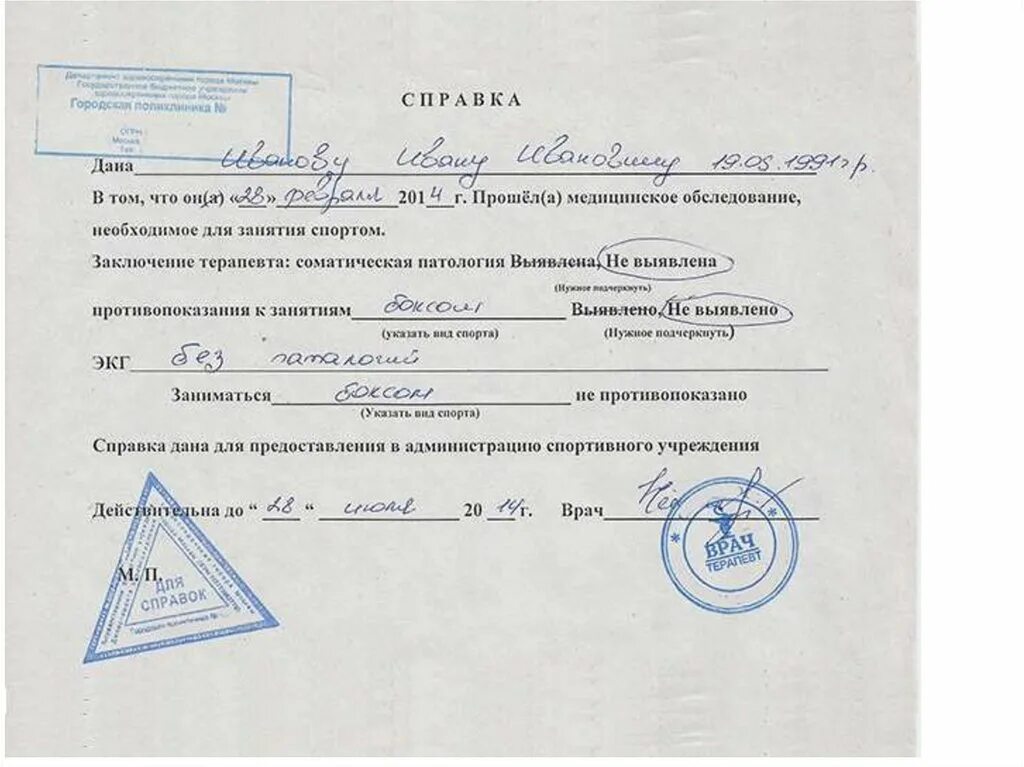 Департамент здравоохранения города Москвы
Государственное бюджетное учреждение
здравоохранения города Москвы
Городская поликлиника №
ОГРН
Москва
Тел
СПРАВКА
Дана Иванову Ивану Ивановичу 19.05.1991г р.
В том, что он(а) «28» февраля 2014 г. Прошёл(а) медицинское обследование,
необходимое для занятия спортом.
Заключение терапевта: соматическая патология Выявлена, Не выявлена
(Нужное подчеркнуть)
противопоказания к занятиям боксом Выявлено, Не выявлено
(указать вид спорта) (Нужное подчеркнуть)
ЭКГ без паталогий
Заниматься боксом не противопоказано
(Указать вид спорта)
Справка дана для предоставления в администрацию спортивного учреждения
Действительна до “ 28 “ июля 20 14 г. Врач
М. П.
ДЛЯ
СПРАВОК
Городская поликлиника №
ВРАЧ
ТЕРАПЕВТ